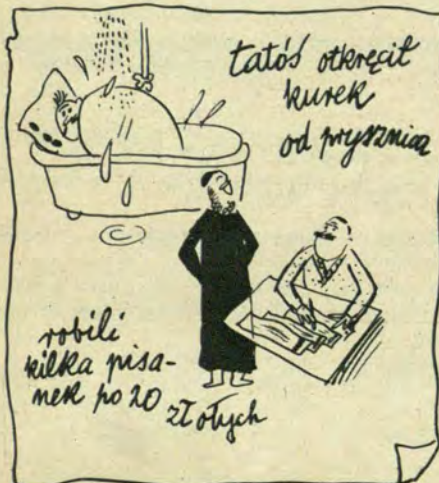 tatóś otkręcił
kurek
od prysznica
robili
kilka pisa-
nek po 20 złotych